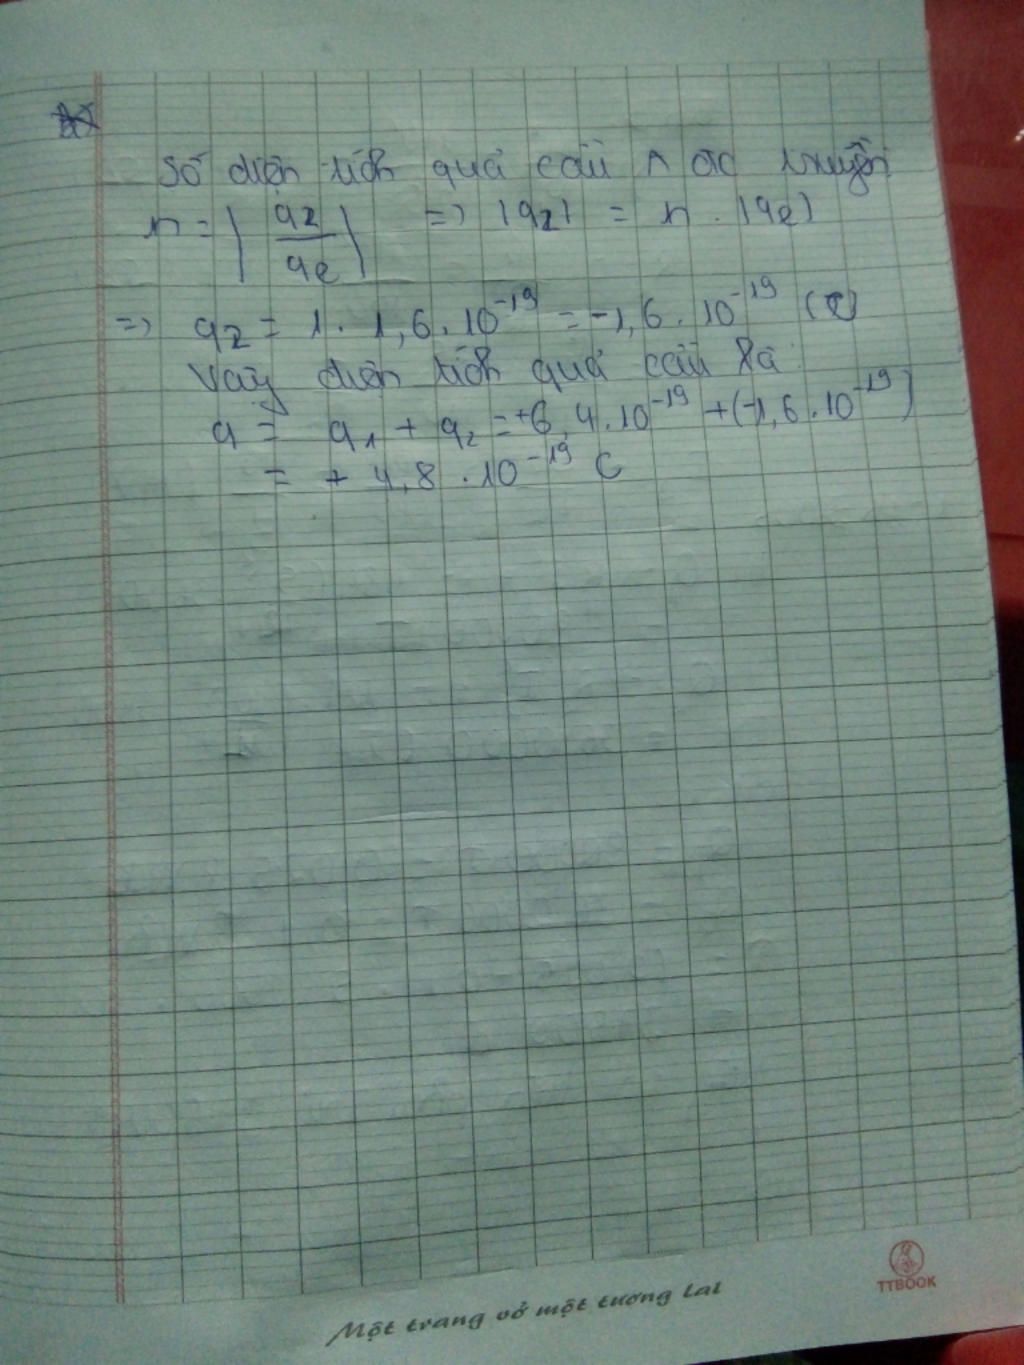 Số điện tích quả cầu A đc truyền
n = | q2 / qe | => |q2| = n . |qe|
=> q2 = 1 . 1,6 . 10^-19 = -1,6 . 10^-19 (C)
Vậy điện tích quả cầu là:
q = q1 + q2 = +6,4.10^-19 + (-1,6.10^-19)
= + 4,8 . 10^-19 C
TTBOOK
Một trang vở một tương lai